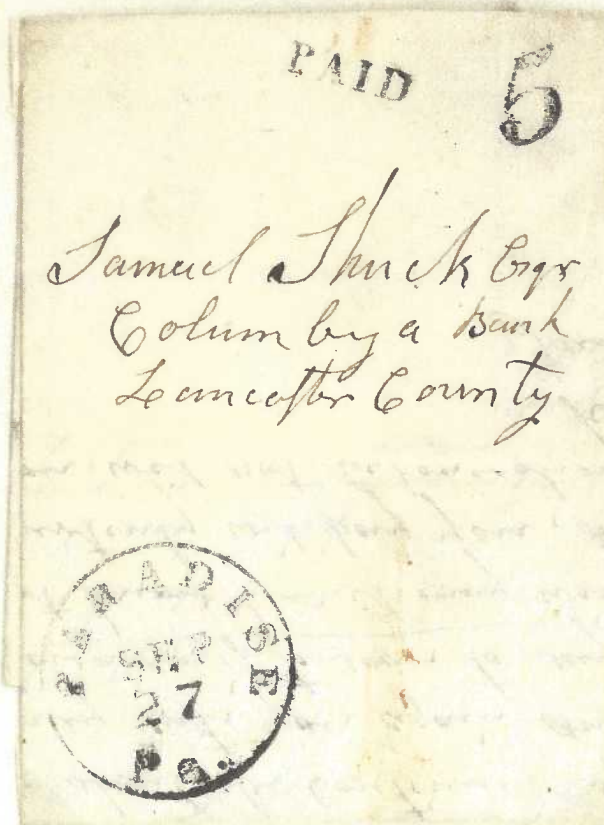 PAID 5
Samuel Shuck Esqr
Columbya Bank
Lancaster County
PARADISE
SEP
27
Pa.